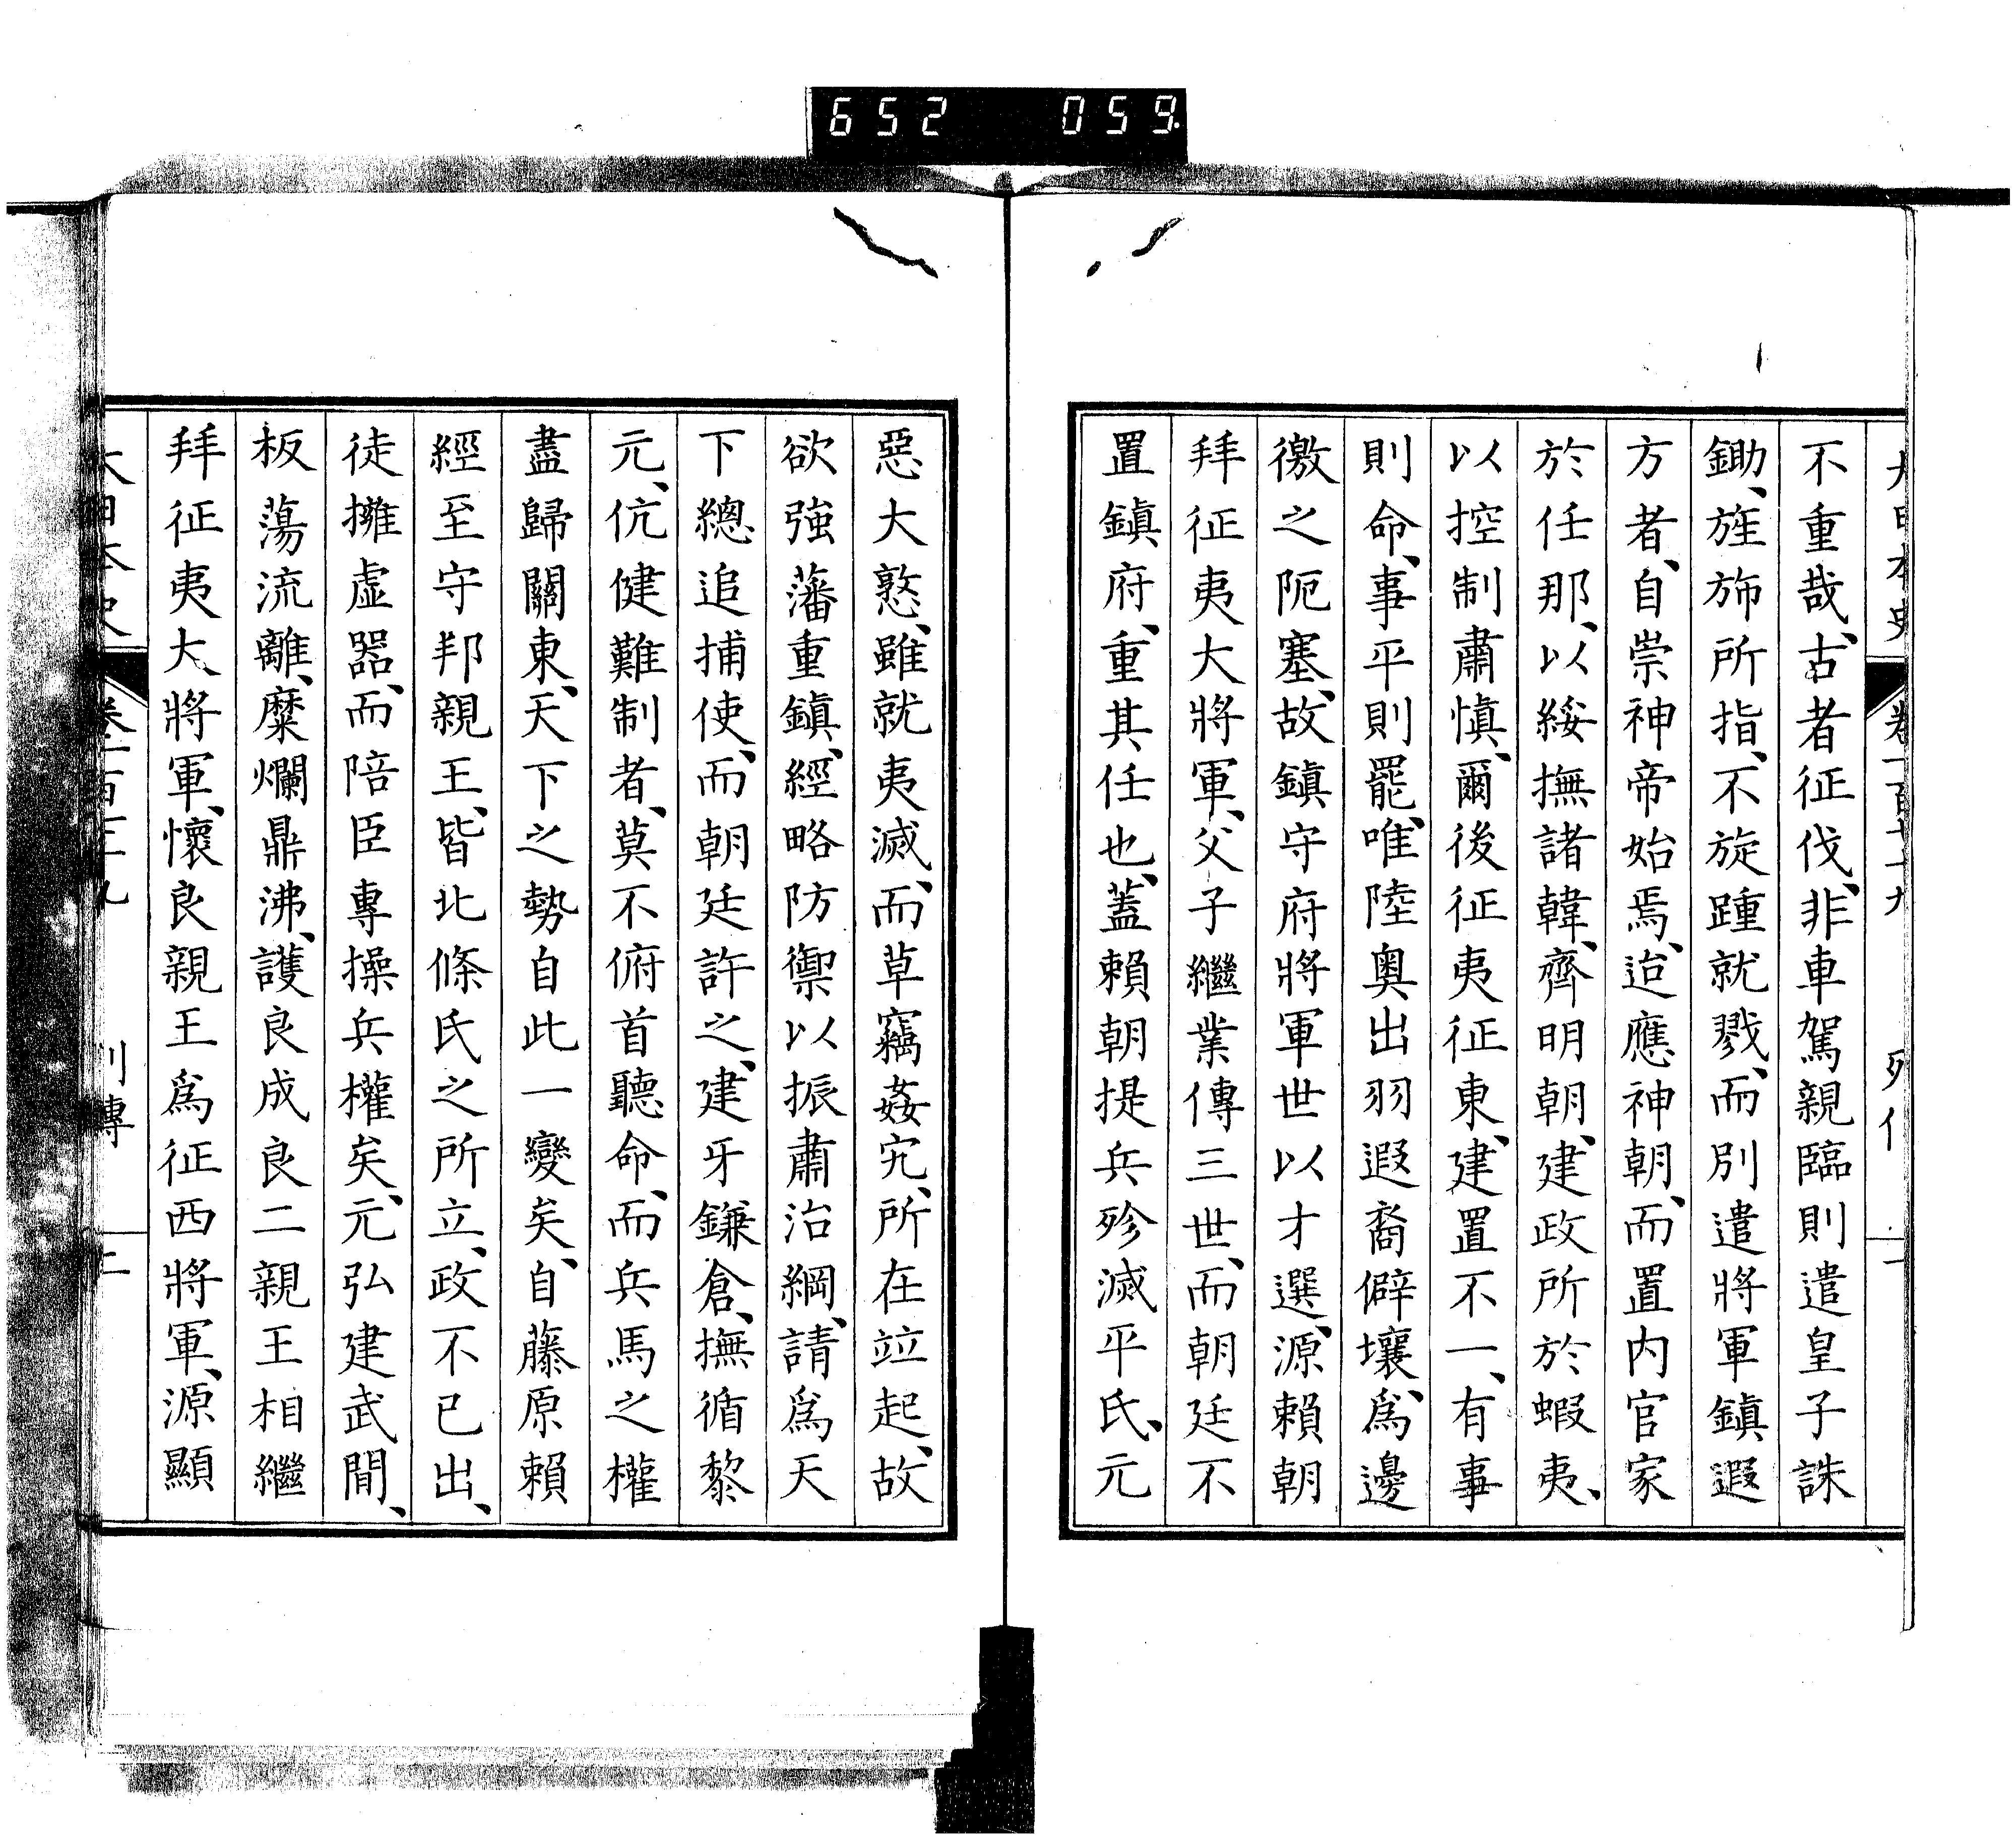 652 059
大日本史 卷一百七十九 列傳 二
不重哉、古者征伐、非車駕親臨則遣皇子誅
鋤、旌斾所指、不旋踵就戮、而別遣將軍鎮遐
方者、自崇神帝始焉、迨應神朝、而置内官家
於任那、以綏撫諸韓、齊明朝、建政所於蝦夷、
以控制肅愼、爾後征夷征東、建置不一、有事
則命、事平則罷、唯陸奥出羽遐裔僻壤、爲邊
徼之阨塞、故鎮守府將軍世以才選、源賴朝
拜征夷大將軍、父子繼業傳三世、而朝廷不
置鎮府、重其任也、蓋賴朝提兵殄滅平氏、元
惡大憝、雖就夷滅、而草竊姦宄、所在竝起、故
欲強藩重鎮、經略防禦以振肅治綱、請爲天
下總追捕使、而朝廷許之、建牙鎌倉、撫循黎
元、伉健難制者、莫不俯首聽命、而兵馬之權
盡歸關東、天下之勢自此一變矣、自藤原賴
經至守邦親王、皆北條氏之所立、政不已出、
徒擁虛器、而陪臣專操兵權矣、元弘建武間、
板蕩流離、糜爛鼎沸、護良成良二親王相繼
拜征夷大將軍、懷良親王爲征西將軍、源顯
大日本史 卷一百七十九 列傳 二